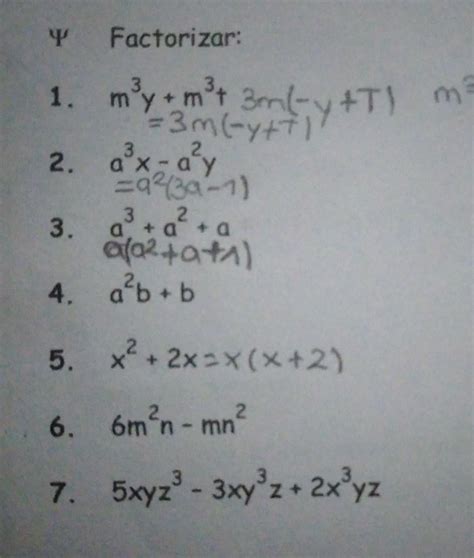 Ψ Factorizar:
1. m³y + m³t 3m(-y+T) m³
= 3m(-y+T)
2. a³x - a²y
= a²(3a-1)
3. a³ + a² + a
a(a²+a+1)
4. a²b + b
5. x² + 2x = x(x+2)
6. 6m²n - mn²
7. 5xyz³ - 3xy³z + 2x³yz